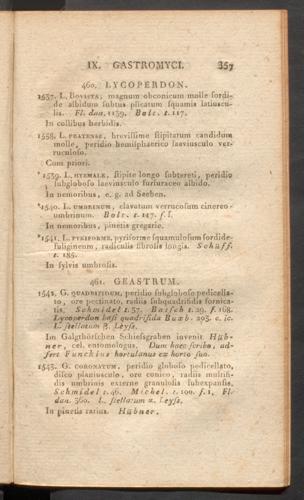 IX. GASTROMYCI. 357
460. LYCOPERDON.
1537. L. BOVISTA, magnum obconicum molle sordi-
de albidum subtus plicatum squamis latiuscu-
lis. Fl. dan. 1139. Bolt. t. 117.
In collibus herbidis.
1538. L. PRATENSE, brevissime stipitatum candidum
molle, peridio hemisphaerico laeviusculo ver-
ruculoso.
Cum priori.
*1539. L. HYEMALE, stipite longo subtereti, peridio
subgloboso laeviusculo furfuraceo albido.
In nemoribus, e. g. ad Seeben.
*1540. L. UMBRINUM, clavatum verrucosum cinereo-
umbrinum. Bolt. t. 117. f. f.
In nemoribus, pinetis gregarie.
*1541. L. PYRIFORME, pyriforme squamulosum sordide
fuligineum, radiculis fibrosis longis. Schäff.
t. 185.
In sylvis umbrosis.
461. GEASTRUM.
1542. G. QUADRIFIDUM, peridio subgloboso pedicella-
to, ore pectinato, radiis subquadrifidis fornica-
tis. Schmidel t. 37. Batsch t. 29. f. 168.
Lycoperdon basi quadrifida Buxb. 203. c. ic.
L. stellatum β. Leyss.
Im Galgthörschen Schiefsgraben invenit Hüb-
ner, cel. entomologus. Dum haec scribo, ad-
fert Funckius hortulanus ex horto suo.
1543. G. CORONATUM, peridio globoso pedicellato,
disco planiusculo, ore conico, radiis multifi-
dis umbrinis externe granulosis subexpansis.
Schmidel t. 46. Michel. t. 100. f. 1. Fl.
dan. 360. L. stellatum α. Leyss.
In pinetis rarius. Hübner.